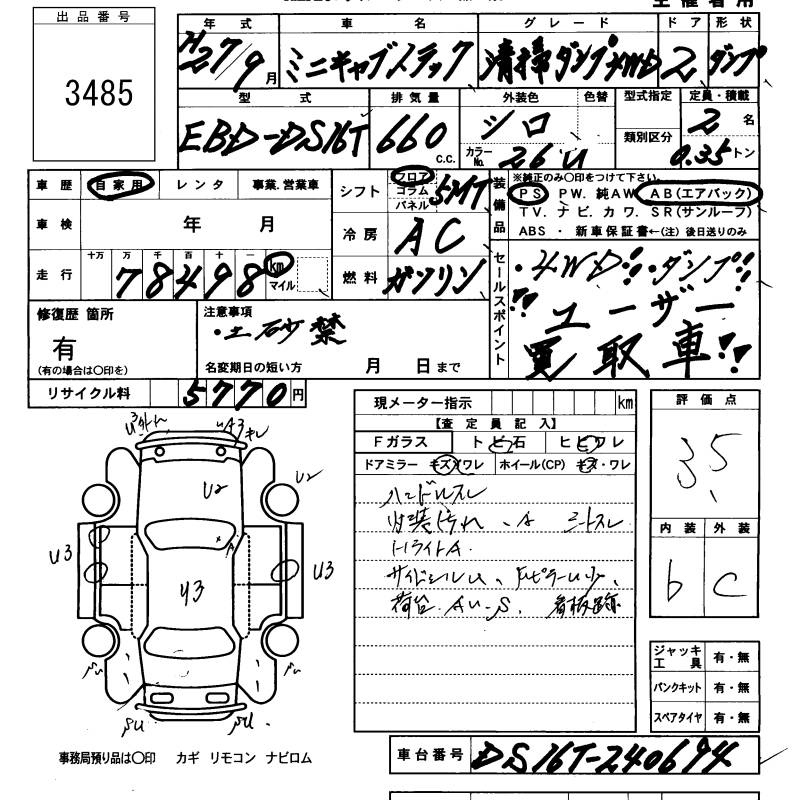 主催者用
出品番号
3485
年式 車名 グレード ドア 形状
H27/9月 ミニキャブトラック 清掃ダンプ4WD 2 ダンプ
型式 排気量 外装色 色替 型式指定 定員・積載
EBD-DS16T 660 C.C. シロ 2名
カラーNo. 26U 類別区分 0.35トン
車歴 自家用 レンタ 事業.営業車
シフト フロア コラム パネル 5MT
装備品 ※純正のみ〇印をつけて下さい。
PS PW. 純AW AB(エアバック)
TV. ナビ. カワ. SR(サンルーフ)
ABS ・ 新車保証書←(注) 後日送りのみ
車検 年 月
冷房 AC
走行 十万 万 千 百 十 一
78498 km マイル
燃料 ガソリン
セールスポイント
・4WD!! ・ダンプ!!
"ユーザー
買取車!!
修復歴 箇所
有
(有の場合は〇印を)
注意事項
・土砂禁
名変期日の短い方 月 日まで
リサイクル料 5770円
現メーター指示 km
【査定員記入】
Fガラス トビ石 ヒビワレ
ドアミラー キズ・ワレ ホイール(CP) キズ・ワレ
ハンドルスレ
内装汚れ ・A シートスレ
トライトA.
荷台 AU-S.
評価点
3.5
内装 外装
b C
U3 A3 キレ
U2 U2
A
U3 U3 U3
事務局預り品は〇印 カギ リモコン ナビロム
ジャッキ工具 有・無
パンクキット 有・無
スペアタイヤ 有・無
車台番号 DS16T-240694